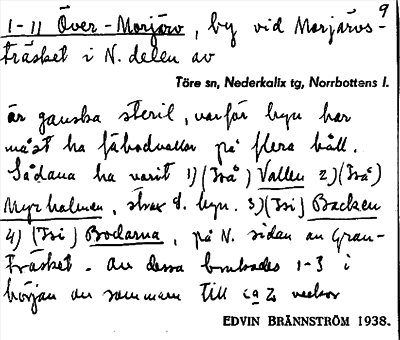 9
1-11 Över-Morjärv, by vid Morjärvs-
träsket i N. delen av
Töre sn, Nederkalix tg, Norrbottens l.
är ganska steril, varför byn har
måst ha fäbodvallar på flera håll.
Sådana ha varit 1) (Två) Vallen 2) (Två)
Myrholmen, strax S. byn. 3) (Tsi) Backen
4) (Tsi) Bodarna, på N. sidan av Gran-
träsket. Av dessa brukades 1-3 i
början av sommaren till ca 2 veckor
EDVIN BRÄNNSTRÖM 1938.